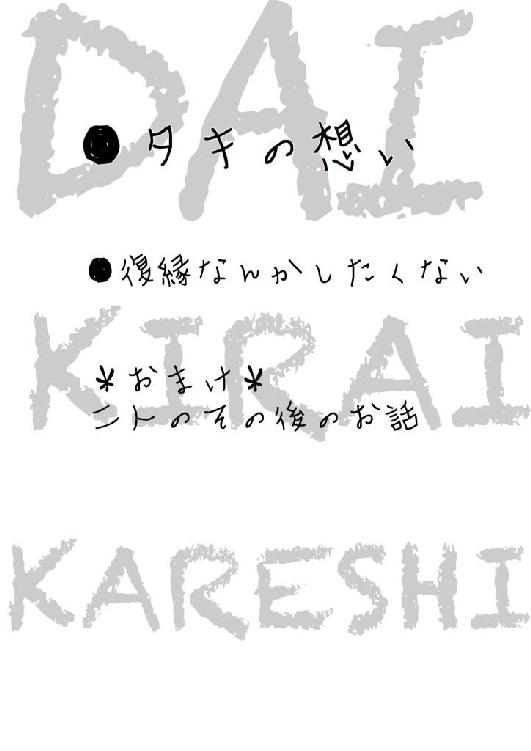 DAI
●タキの想い
●復縁なんかしたくない
KIRAI
*おまけ*
二人のその後のお話
KARESHI